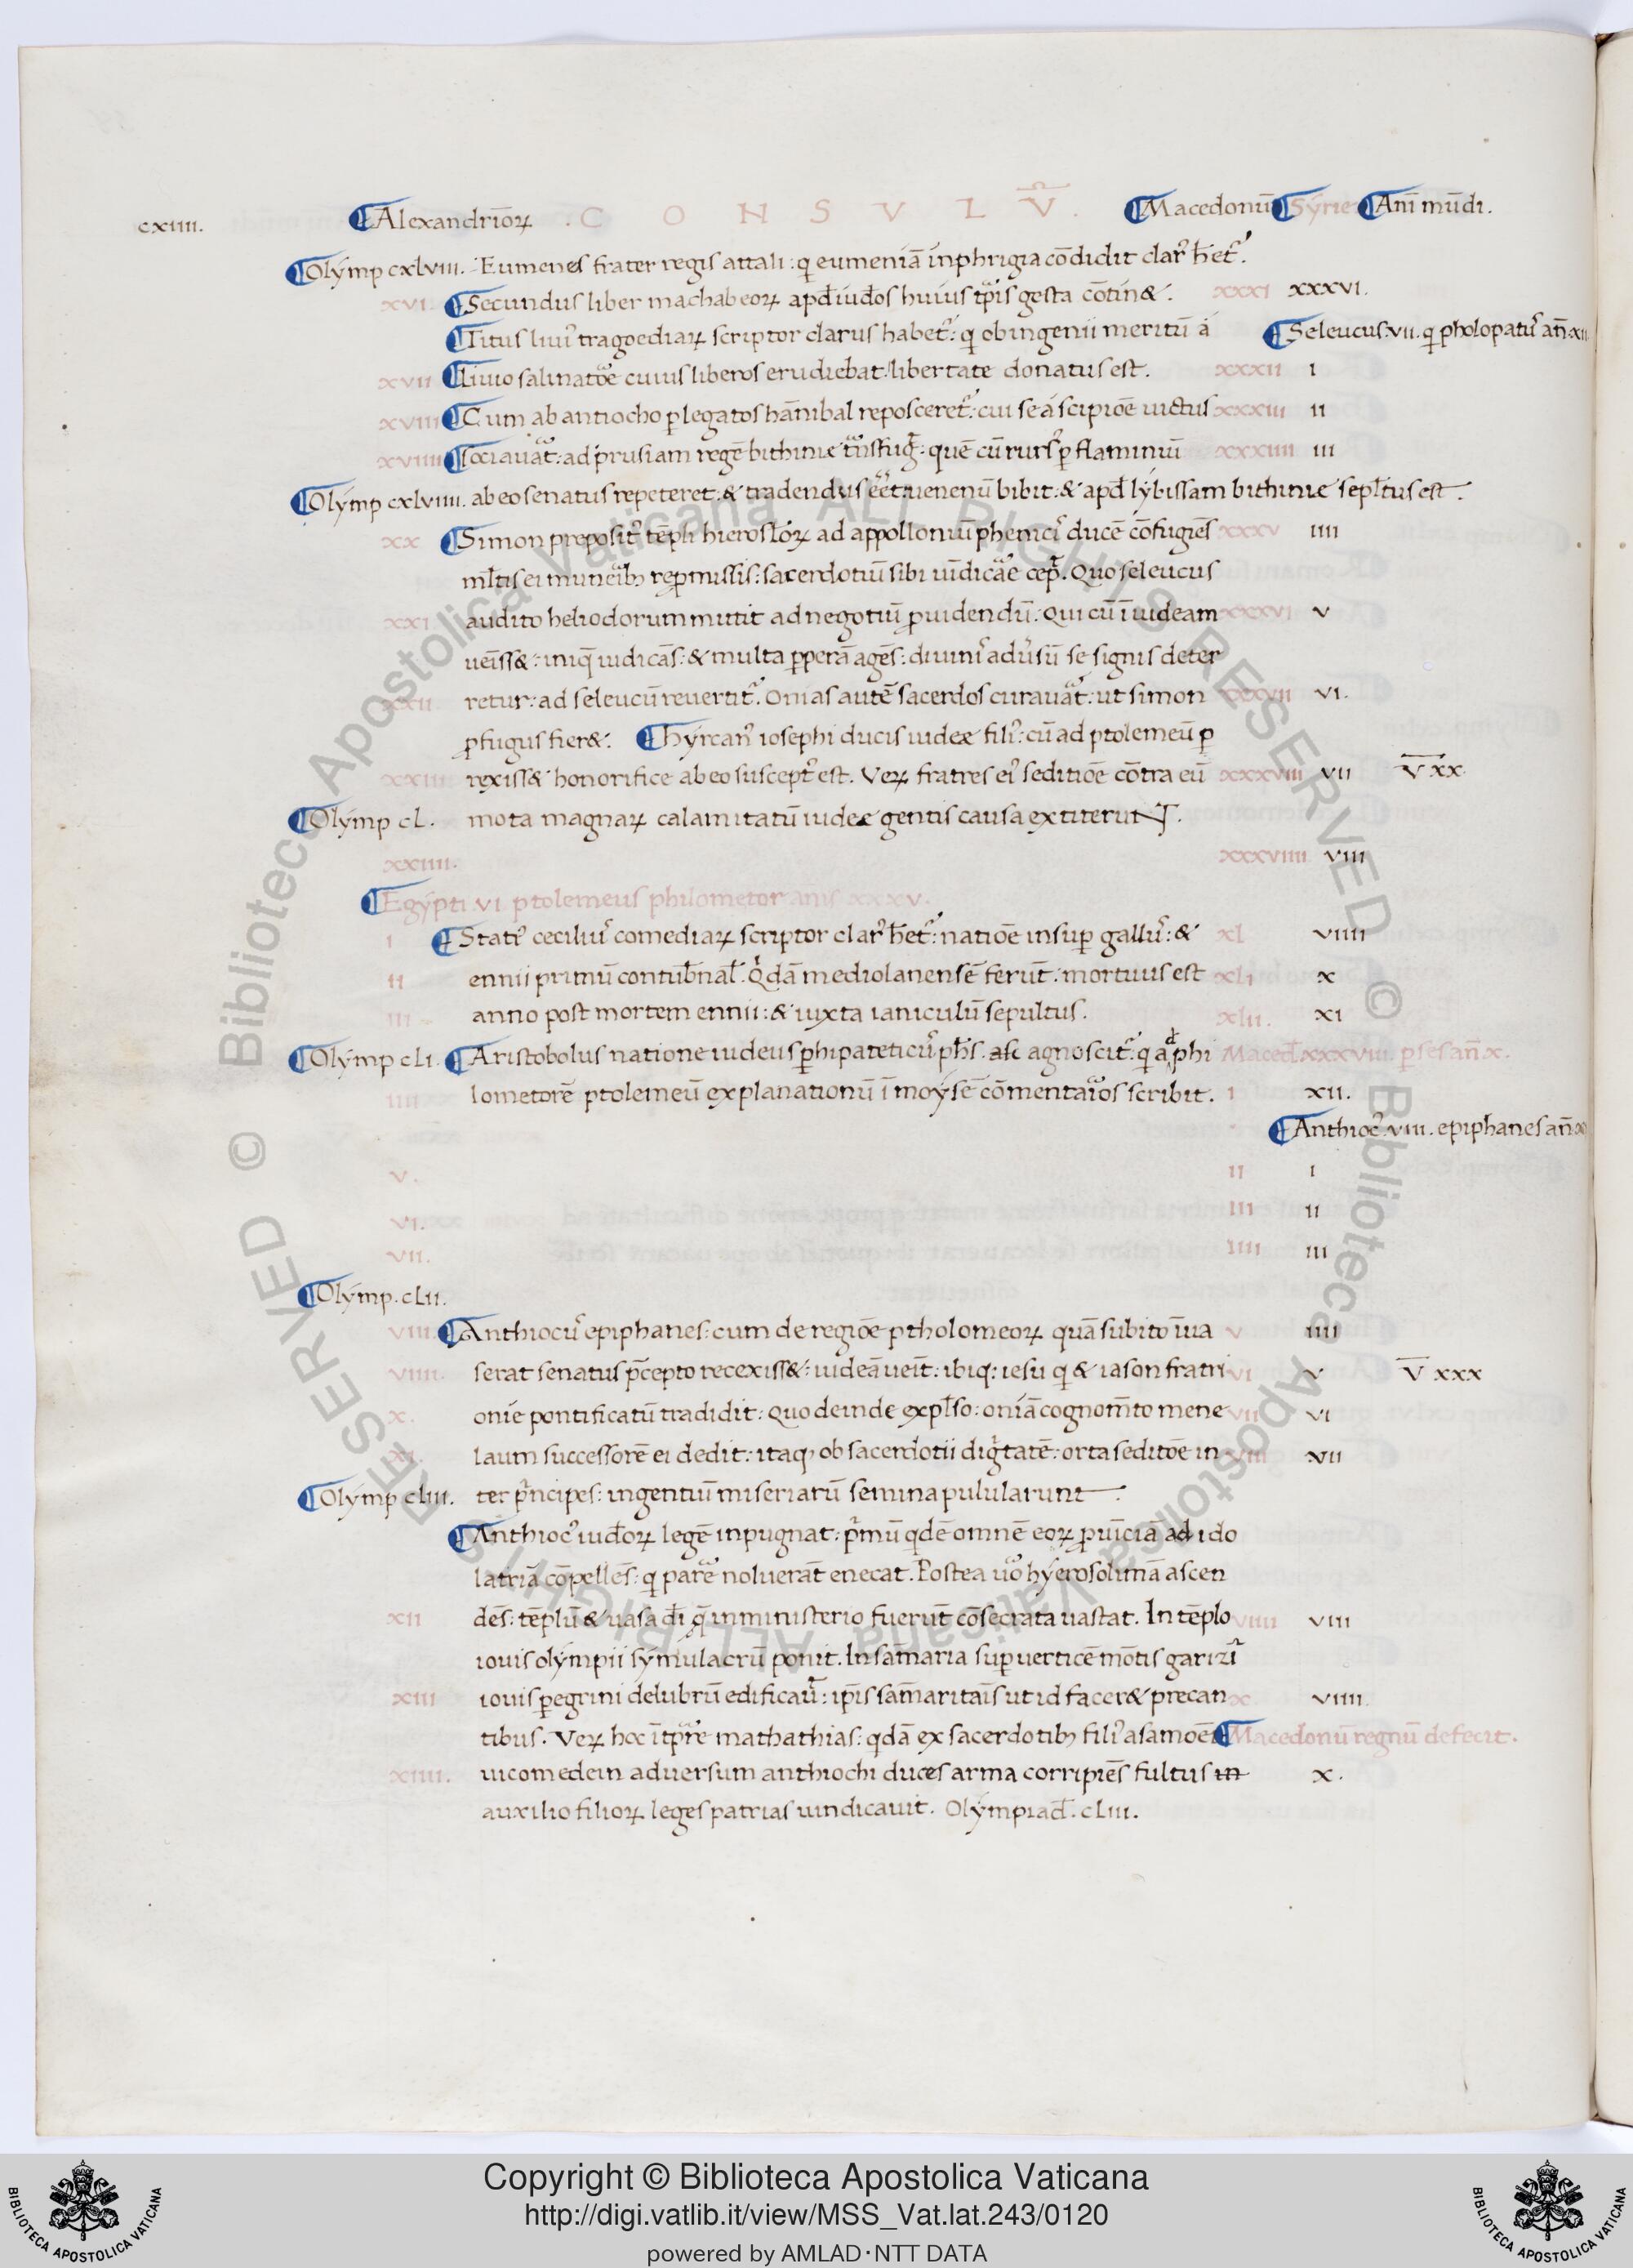 cxiiii. ¶Alexandrīoꝝ .CONSVLV̄. ¶Macedonū ¶Syrie ¶Anī mūdi.
¶Olymp cxlviii. Eumenes frater regis attali: q eumeniā in phrigia cōdidit clar᾽ het᾽.
xvi. ¶Secundus liber machabeoꝝ apđ iuđos huius tp̄is gesta cōtin&. xxxi xxxvi.
¶Titus liui᾽ tragoediaꝝ scriptor clarus habet᾽: q ob ingenii meritū á ¶Seleucus.vii. q pholopatu᾽ an̄.xii
xvii ¶Liuio salinatoe cuius liberos erudiebat libertate donatus est. xxxii i
xviii ¶Cum ab antiocho ꝑ legatos hānibal reposceret᾽: cui se á scipiōe uictus xxxiii ii
xviiii ¶Sociauāt: ad prusiam regē bithinie tn̄sfug᾽: quē cū rurs᾽ ꝑ flaminiū xxxiiii iii
¶Olymp cxlviiii. ab eo senatus repeteret: & tradendus eet: uenenū bibit: & apđ lybissam bithinie sepl̄tus est.
xx ¶Simon preposit᾽ tēpli hierosl̄oꝝ ad appolloniū phenici᾽ ducē cōfugiēs xxxv iiii
ml̄tis ei muneibꝫ repmissis: sacerdotiū sibi uīdicae cep᾽. Quo seleucus
xxi audito heliodorum mittit ad negotiū ꝓuidendū. Qui cū ī iudeam xxxvi v
ueīss&: iniq̄ iudicās: & multa ꝑperā agēs: diuini᾽ adu᾽sū se signis deter
xxii retur: ad seleucū reuertit᾽. Onias autē sacerdos curauāt: ut simon xxxvii vi.
ꝓfugus fier&. ¶Hyrcan᾽ iosephi ducis iudee fili᾽: cū ad ptolemeū ꝑ
xxiii rexiss& honorifice ab eo suscept᾽ est. Veꝝ fratres ei᾽ seditiōe cōtra eū xxxviii vii V̄ xx.
¶Olymp cl. mota magnaꝝ calamitatū iudee gentis causa extiteruNT.
xxiiii. xxxviiii viii
¶Egypti vi ptolemeus philometor anis xxxv.
i ¶Stati᾽ ceciliu᾽ comediaꝝ scriptor clar᾽ het᾽: natiōe insuꝑ gallu᾽: & xl viiii
ii ennii primū contub̄nal᾽. Qdā mediolanensē ferūt: mortuus est xli x
iii anno post mortem ennii: & iuxta ianiculū sepultus. xlii. xi
¶Olymp cli. ¶Aristobolus natione iudeus ꝑhipateticu᾽ ph̄s. agnoscit᾽: q ad phi Maceđ.xxxviii. ꝑses an̄.x.
iiii lometorē ptolemeū explanationū ī moysē cōmentaios scribit. i xii.
¶Anthioc᾽.viii. epiphanes an̄
v. ii i
vi. iii ii
vii. iiii iii
¶Olymp.clii.
viii. ¶Anthiocu᾽ epiphanes: cum de regiōe ptholomeoꝝ quā subito īua v iiii
viiii. serat senatus p̄cepto recexiss&: iudeā ueīt: ibiq: iesu q & iason fratri vi v V̄ xxx
x. onie pontificatū tradidit: quo deinde expl̄so: oniā cognom̄to mene vii vi
xi. laum successorē ei dedit: itaqꝫ ob sacerdotii dig᾽tatē: orta seditōe in viii vii
¶Olymp cliii. ter p᾽ncipes: ingentiū miseriarū semina pulularunt.
¶Anthioc᾽ iuđoꝝ legē inpugnat: p᾽mū qdē omnē eoꝝ ꝓuīciā ad ido
latriā cōpellēs: q pare noluerāt enecat. Postea uo hyerosolimā ascen
xii dēs: tēplū & uasa di q̄ in ministerio fuerūt cōsecrata uastat. In tēplo viiii viii
iouis olympii symulacrū ponit. In sam̄aria suꝑ uerticē mōtis garizī
xiii iouis ꝑegrini delubrū edificau᾽: ip̄is sam̄aritaīs ut id facer& precan x viiii.
tibus. Veꝝ hoc ītp̄re mathathias: qdā ex sacerdotibꝫ fili᾽ asamoēi ¶Macedonū regnū defecit.
xiiii. uico medein adversum anthiochi duces arma corripiēs fultus in x.
auxilio filioꝝ leges patrias uindicauit. Olympiađ.cliii.
Copyright © Biblioteca Apostolica Vaticana
http://digi.vatlib.it/view/MSS_Vat.lat.243/0120
powered by AMLAD·NTT DATA